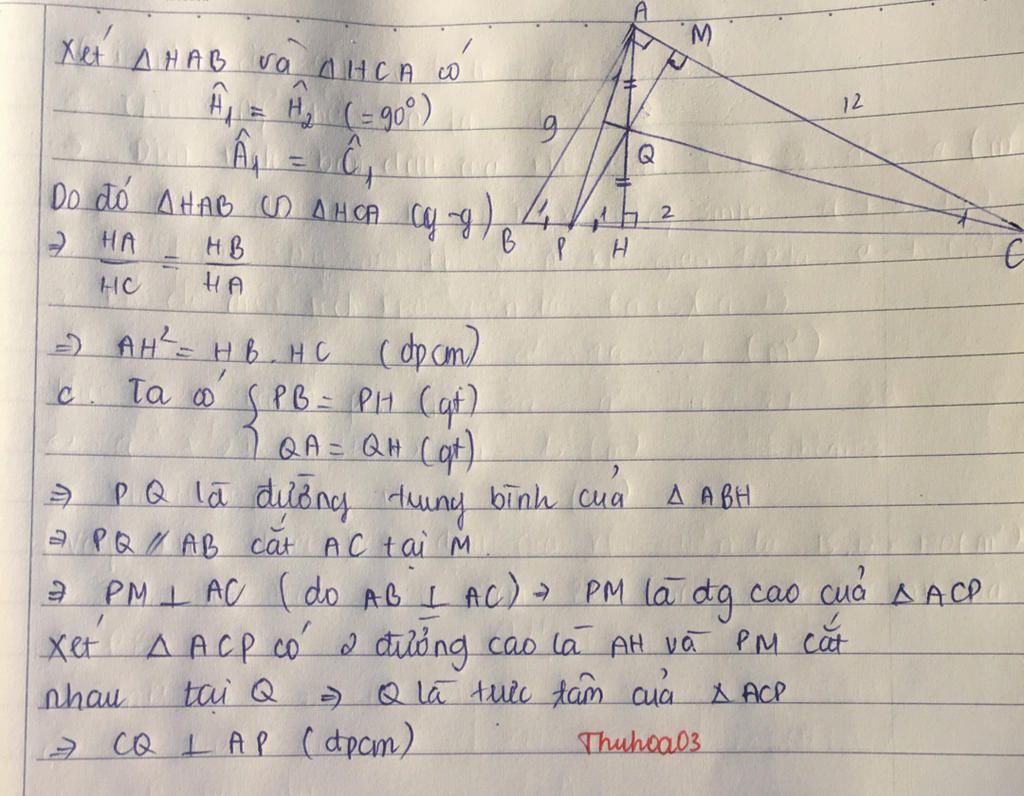 Xét Δ HAB và Δ HCA có
Ĥ₁ = Ĥ₂ (= 90°)
Â₁ = Ĉ₁
Do đó Δ HAB ∽ Δ HCA (g-g)
⇒ HA/HC = HB/HA
⇒ AH² = HB. HC (đpcm)
c. Ta có { PB = PH (gt)
QA = QH (gt)
⇒ PQ là đường trung bình của Δ ABH
⇒ PQ // AB cắt AC tại M.
⇒ PM ⊥ AC (do AB ⊥ AC) → PM là đg cao của Δ ACP
Xét Δ ACP có 2 đường cao là AH và PM cắt
nhau tại Q ⇒ Q là trực tâm của Δ ACP
⇒ CQ ⊥ AP (đpcm)
Thuhoa03
A
M
9
12
Q
1
1
1
2
1
B
P
H
C